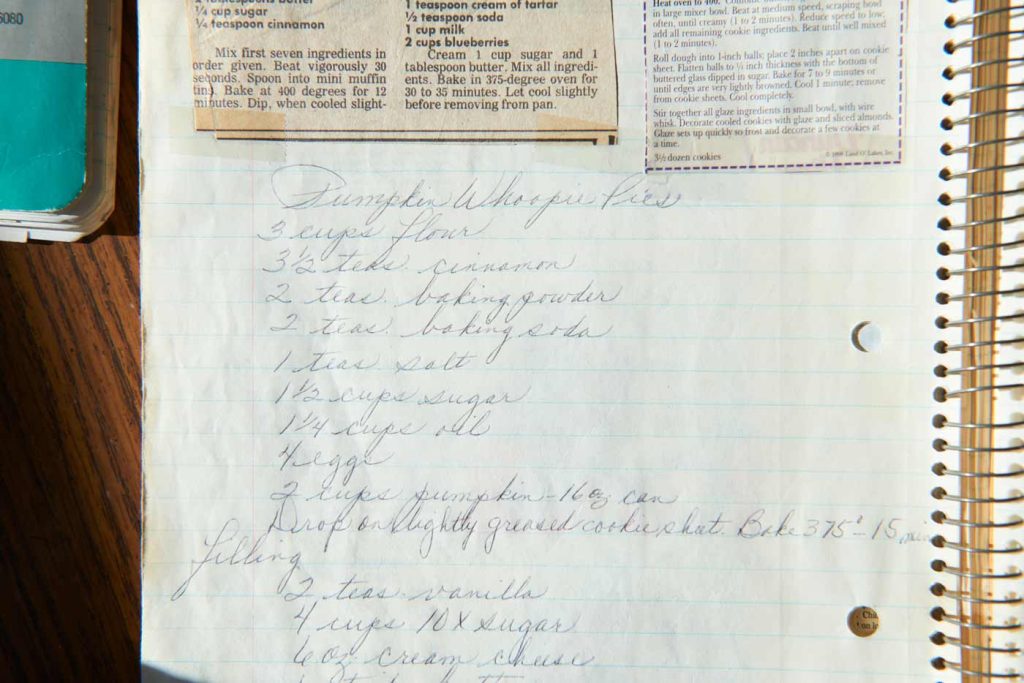 6080
¼ cup sugar
¼ teaspoon cinnamon
Mix first seven ingredients in
order given. Beat vigorously 30
seconds. Spoon into mini muffin
tins. Bake at 400 degrees for 12
minutes. Dip, when cooled slight-
1 teaspoon cream of tartar
½ teaspoon soda
1 cup milk
2 cups blueberries
Cream 1 cup sugar and 1
tablespoon butter. Mix all ingredi-
ents. Bake in 375-degree oven for
30 to 35 minutes. Let cool slightly
before removing from pan.
Heat oven to 400.
in large mixer bowl. Beat at medium speed, scraping bowl
often, until creamy (1 to 2 minutes). Reduce speed to low;
add all remaining cookie ingredients. Beat until well mixed
(1 to 2 minutes).
Roll dough into 1-inch balls; place 2 inches apart on cookie
sheet. Flatten balls to ¼ inch thickness with the bottom of
buttered glass dipped in sugar. Bake for 7 to 9 minutes or
until edges are very lightly browned. Cool 1 minute; remove
from cookie sheets. Cool completely.
Stir together all glaze ingredients in small bowl, with wire
whisk. Decorate cooled cookies with glaze and sliced almonds.
Glaze sets up quickly so frost and decorate a few cookies at
a time.
3½ dozen cookies
Land O'Lakes, Inc.
Pumpkin Whoopie Pies
3 cups flour
3½ teas. cinnamon
2 teas. baking powder
2 teas. baking soda
1 teas salt
1½ cups sugar
1¼ cups oil
4 eggs
2 cups pumpkin - 16 oz can
Drop on lightly greased cookie sheet. Bake 375° - 15 min
filling
2 teas. vanilla
4 cups 10X sugar
6 oz. cream cheese